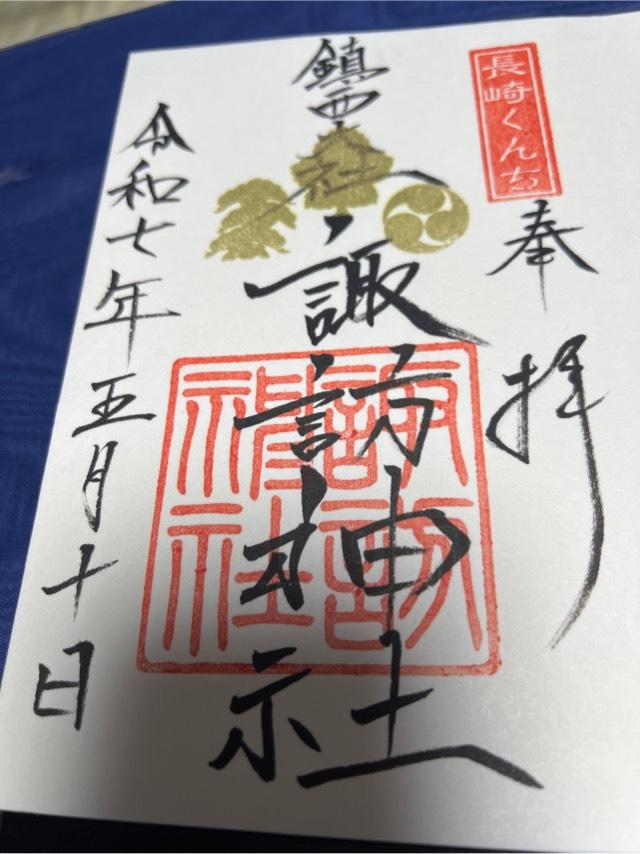 長崎くんち
奉拝
鎮西大社
諏訪神社
諏訪神社
令和七年五月十日